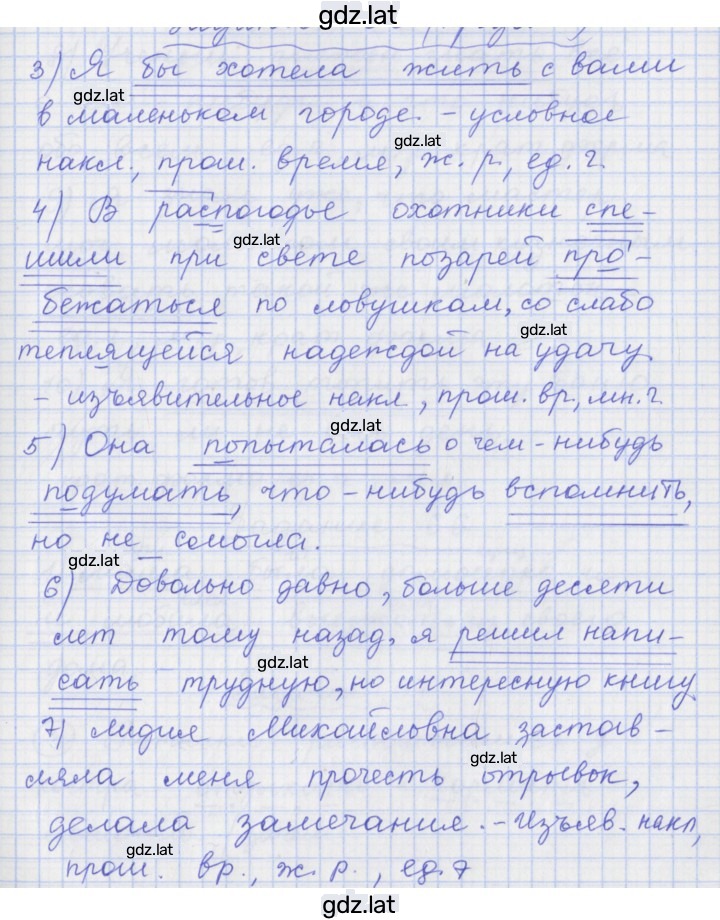 gdz.lat
3) Я бы хотела жить с вами
gdz.lat
в маленьком городе. – условное
gdz.lat
накл., прош. время, ж. р., ед. ч.
4) В распогодье охотники спе-
gdz.lat
шили при свете позарей про-
бежаться по ловушкам, со слабо
gdz.lat
теплящейся надеждой на удачу.
– изъявительное накл., прош. вр, мн. ч.
gdz.lat
5) Она попыталась о чем-нибудь
подумать, что-нибудь вспомнить,
но не смогла.
gdz.lat
6) Довольно давно, больше десяти
лет тому назад, я решил напи-
gdz.lat
сать трудную, но интересную книгу.
7) Лидия Михайловна застав-
gdz.lat
ляла меня прочесть отрывок,
делала замечания. – Изъяв. накл,
gdz.lat
прош. вр., ж. р., ед. ч
gdz.lat